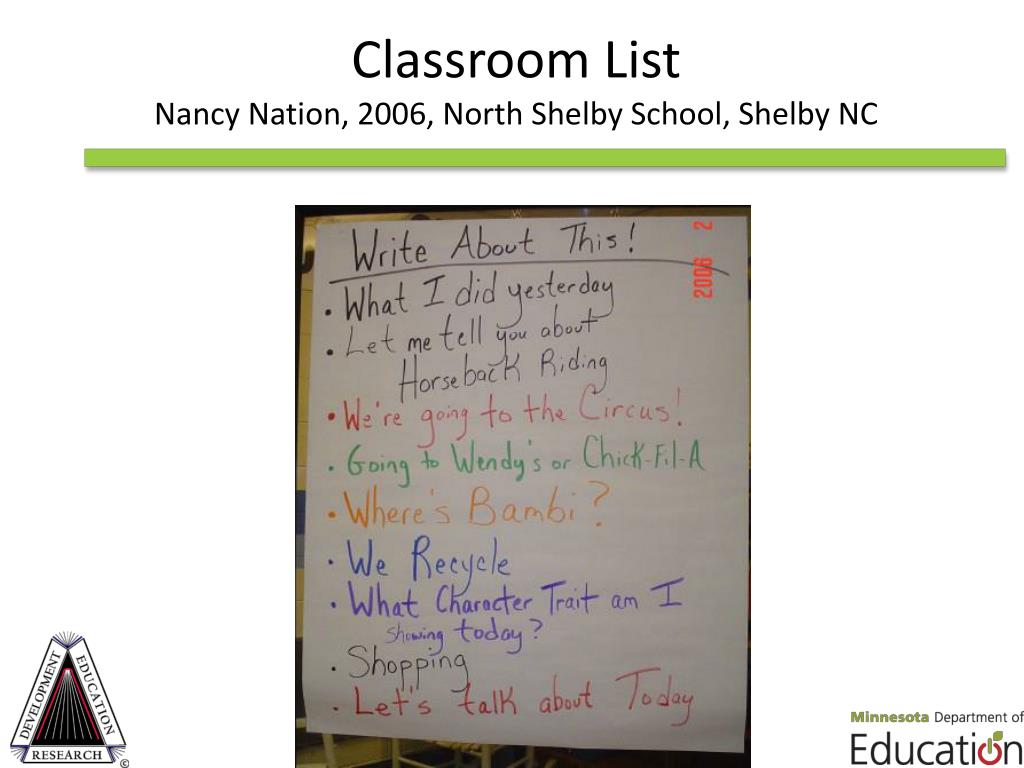 Classroom List
Nancy Nation, 2006, North Shelby School, Shelby NC
Write About This!
2006 2
• What I did yesterday
• Let me tell you about
Horseback Riding
• We're going to the Circus!
• Going to Wendy's or Chick-Fil-A
• Where's Bambi?
• We Recycle
• What Character Trait am I
showing today?
• Shopping
• Let's talk about Today
DEVELOPMENT
EDUCATION
RESEARCH
©
Minnesota Department of
Education